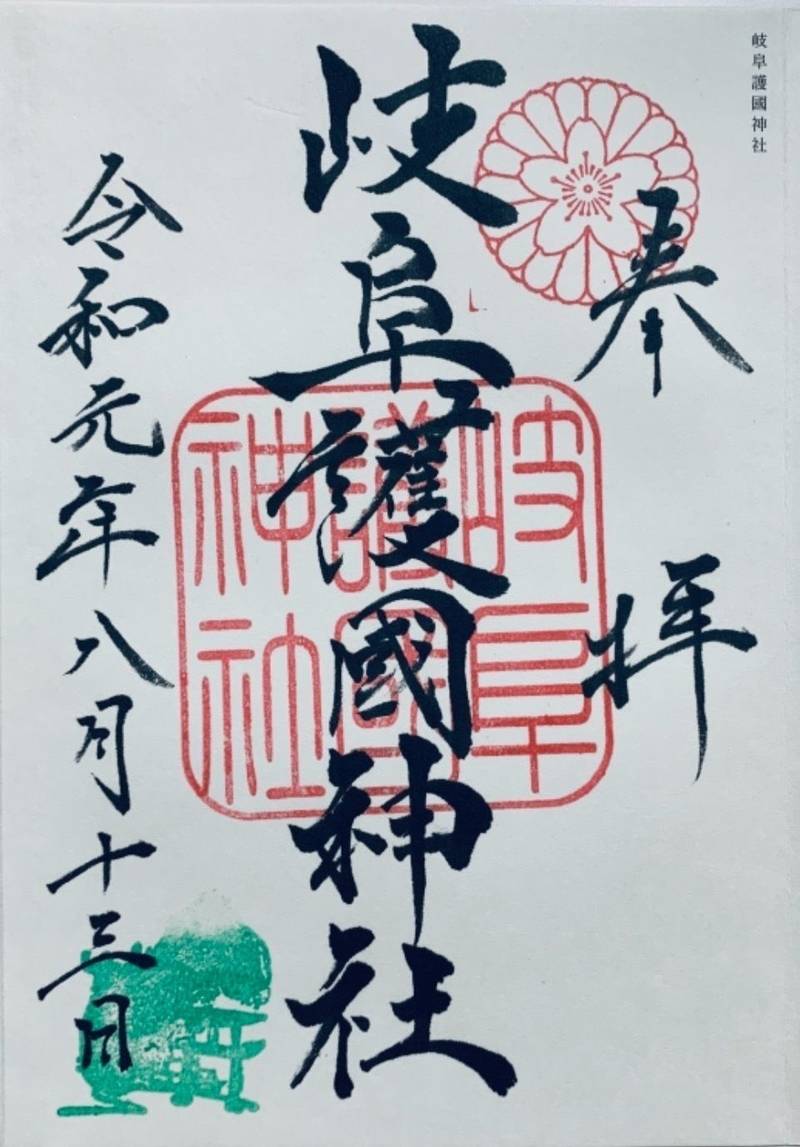 岐阜護國神社
奉拝
岐阜護國神社
岐阜
護國
神社
令和元年八月十三日